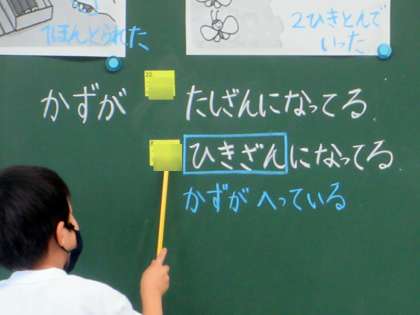 1ほんとられた
2ひきとんで
いった
かずが たしざんになってる
ひきざんになってる
かずが へっている